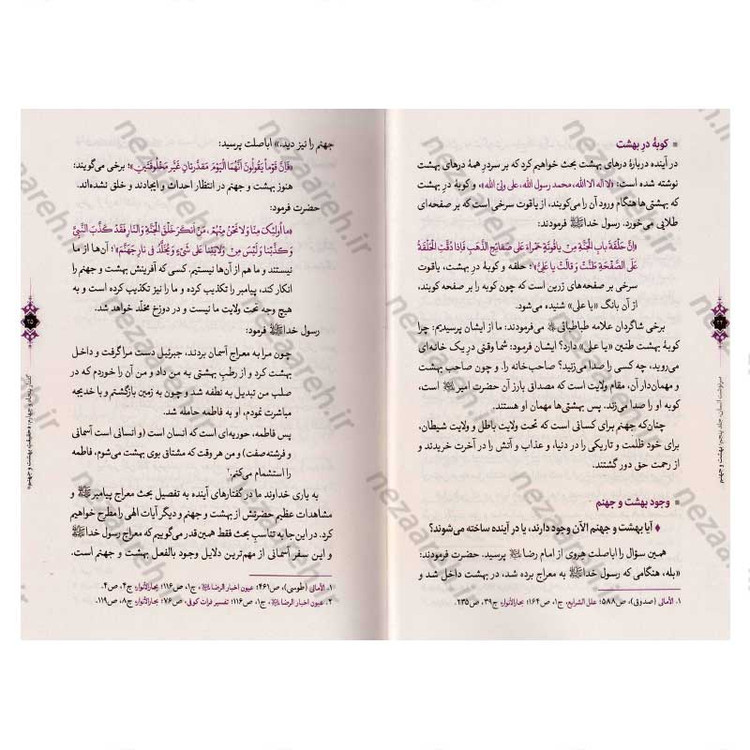 کوبهٔ در بهشت
در آینده دربارهٔ درهای بهشت بحث خواهیم کرد که بر سردرِ همهٔ درهای بهشت
نوشته شده است: «لا اله الا الله، محمد رسول الله، علی ولیّ الله»، و کوبهٔ در بهشت
که بهشتی‌ها هنگام ورود آن را می‌کوبند، از یاقوت سرخی است که بر صفحه‌ای
طلایی می‌خورد. رسول خدا ﷺ فرمودند:
«إنَّ حَلْقَةَ بابِ الْجَنَّةِ مِنْ یاقُوتَةٍ حَمْراءَ عَلی صَفائِحِ الذَّهَبِ فَإذا دُقَّتِ الْحَلْقَةُ
عَلَی الصَّفْحَةِ طَنَّتْ وَ قالَتْ یا عَلِیُّ»؛ حلقه و کوبهٔ در بهشت، یاقوت
سرخی بر صفحه‌های زرین است که چون کوبه را بر صفحه کوبند،
از آن بانگ «یا علی» شنیده می‌شود.
برخی شاگردان علامه طباطبائی می‌فرمودند: ما از ایشان پرسیدیم: چرا
کوبهٔ بهشت طنین «یا علی» دارد؟ ایشان فرمود: شما وقتی درِ یک خانه‌ای
می‌روید، چه کسی را صدا می‌زنید؟ صاحب‌خانه را. و چون صاحب بهشت
و مهمان‌دار آن، مقام ولایت است که مصداق بارز آن حضرت امیر است،
کوبه او را صدا می‌زند. پس بهشتی‌ها مهمان او هستند.
چنان‌که جهنم برای کسانی است که تحت ولایت باطل و ولایت شیطان،
برای خود ظلمت و تاریکی را در دنیا، و عذاب و آتش را در آخرت خریدند و
از رحمت حق دور گشتند.
وجود بهشت و جهنم
♦ آیا بهشت و جهنم الآن وجود دارند، یا در آینده ساخته می‌شوند؟
همین سؤال را اباصلت هروی از امام رضا پرسید. حضرت فرمودند:
«بله، هنگامی که رسول خدا ﷺ به معراج برده شد، در بهشت داخل شد و
۱. الأمالی (صدوق)، ص۵۸۸؛ علل الشرایع، ج۱، ص۱۶۴؛ بحارالأنوار، ج۳۹، ص۲۳۵.
سرنوشت انسان، جلد پنجم: بهشت و جهنم
جهنم را نیز دید.» اباصلت پرسید:
«فَإنَّ قَوْماً یَقُولُونَ أنَّهُما الْیَوْمَ مُقَدَّرَتانِ غَیْرُ مَخْلُوقَتَیْنِ»؛ برخی می‌گویند:
هنوز بهشت و جهنم در انتظار احداث و ایجادند و خلق نشده‌اند.
حضرت فرمود:
«ما أولئِکَ مِنّا وَ لا نَحْنُ مِنْهُمْ، مَنْ أنْکَرَ خَلْقَ الْجَنَّةِ وَ النّارِ فَقَدْ کَذَّبَ النَّبِیَّ
وَ کَذَّبَنا وَ لَیْسَ مِنْ وَلایَتِنا عَلی شَیْءٍ وَ یُخَلَّدُ فی نارِ جَهَنَّمَ»؛ آن‌ها از ما
نیستند و ما هم از آن‌ها نیستیم. کسی که آفرینش بهشت و جهنم را
انکار کند، پیامبر را تکذیب کرده و ما را نیز تکذیب کرده است و به
هیچ وجه تحت ولایت ما نیست و در دوزخ مخلّد خواهد شد.
رسول خدا ﷺ فرمود:
چون مرا به معراج آسمان بردند، جبرئیل دست مرا گرفت و داخل
بهشت کرد و از رطبِ بهشتی به من داد و من آن را خوردم که در
صلب من تبدیل به نطفه شد و چون به زمین بازگشتم و با خدیجه
مباشرت نمودم، او به فاطمه حامله شد.
پس فاطمه، حوریه‌ای است که انسان است (و انسانی است آسمانی
و فرشته صفت) و من هر وقت که مشتاق بوی بهشت می‌شوم، فاطمه
را استشمام می‌کنم.²
به یاری خداوند ما در گفتارهای آینده به تفصیل بحث معراج پیامبر ﷺ و
مشاهدات عظیم حضرتش از بهشت و جهنم و دیگر آیات الهی را مطرح خواهیم
کرد. در این‌جا به تناسب بحث فقط همین قدر می‌گوییم که معراج رسول خدا ﷺ
و این سفر آسمانی از مهم‌ترین دلایل وجود بالفعل بهشت و جهنم است.
۱. الأمالی (طوسی)، ص۴۶۱؛ عیون اخبار الرضا، ج۱، ص۱۱۶؛ بحارالأنوار، ج۴، ص۴.
۲. عیون اخبار الرضا، ج۱، ص۱۱۶؛ تفسیر فرات کوفی، ص۷۶؛ بحارالأنوار، ج۸، ص۱۱۹.
nezaareh.ir